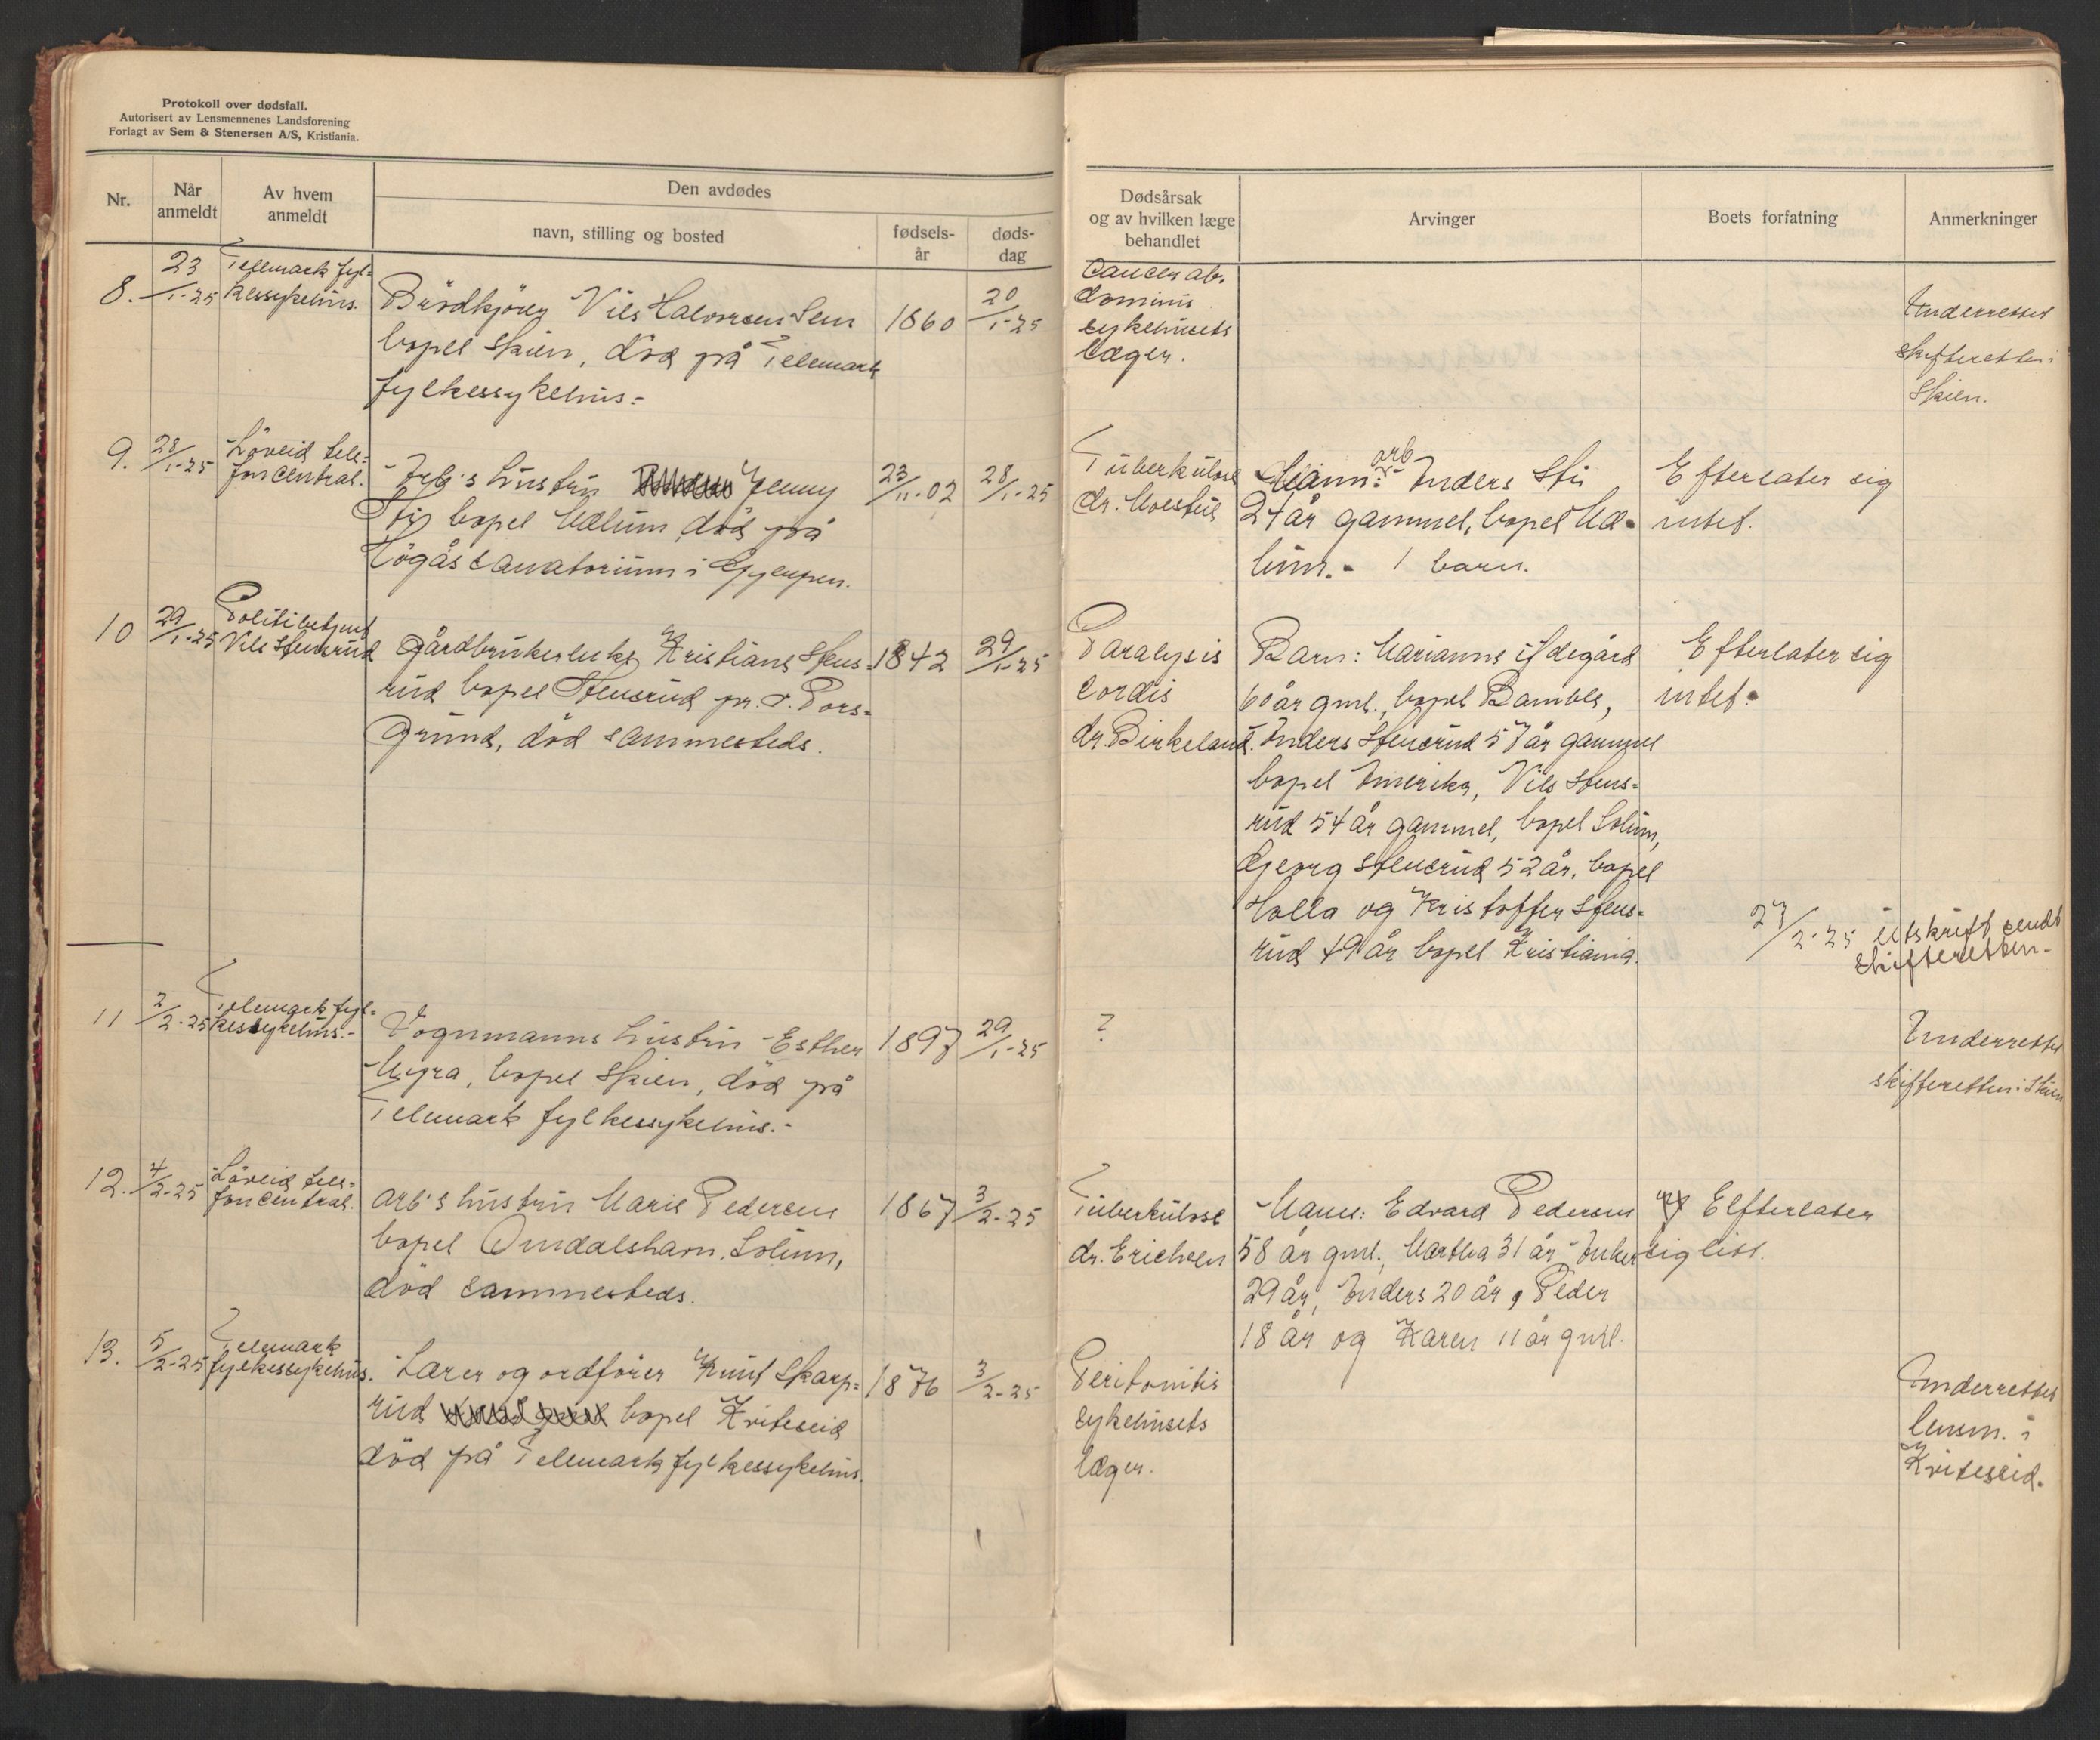 Protokoll over dødsfall.
Autorisert av Lensmennenes Landsforening
Forlagt av Sem & Stenersen A/S, Kristiania.
Nr.
Når anmeldt
Av hvem anmeldt
Den avdødes
navn, stilling og bosted
fødsels-år
døds-dag
Dødsårsak og av hvilken læge behandlet
Arvinger
Boets forfatning
Anmerkninger
8.
23/1-25
Telemark fyl=
kessykehus.
Brödkjörer Nils Halvorsen Sem
bopel Skien, död på Telemark
fylkessykehus.-
1860
20/1-25
Cancer ab.
dominis
sykehusets
læger.
Underrettet
skifteretten i
Skien.
9.
28/1-25
Löveid tele=
foncentral.
Arb's hustru Jenny
Sti, bopel Mælum, död på
Högås sanatorium i Gjerpen.
23/11-02
28/1-25
Tuberkulose
dr. Moestue
Mann: arb. Anders Sti
24 år gammel, bopel Mæ-
lum.- 1 barn.
Efterlater sig
intet.
10
29/1-25
Politibetjent
Nils Stensrud
Gårdbrukerenke Kristiane Stens=
rud bopel Stensrud pr. Pors=
grund, död sammesteds.
1842
29/1-25
Paralysis
cordis
dr. Birkeland
Barn: Marianne Ildegård
60 år gml., bopel Bamble,
Anders Stensrud 57 år gammel
bopel Amerika, Nils Stens=
rud 54 år gammel, bopel Solum,
Georg Stensrud 52 år, bopel
Holla og Kristoffer Stens=
rud 49 år bopel Kristiania.
Efterlater sig
intet.
27/2-25 utskrift sendt
skifteretten-
11
2/2-25
Telemark fyl=
kessykehus.-
Vognmanns hustru Esther
Myra, bopel Skien, död på
Telemark fylkessykehus.-
1897
29/1-25
?
Underrettet
skifteretten i Skien
12.
4/2-25
Löveid tele=
foncentral.
Arb's hustru Marie Pedersen
bopel Omdalshavn, Solum,
död sammesteds.
1867
3/2-25
Tuberkulose
dr. Erichsen
Mann: Edvard Pedersen
58 år gml., Martha 31 år Anker
29 år, Anders 20 år, Peder
18 år og Karen 11 år gml.
Efterlater
sig litt.
13.
5/2-25
Telemark
fylkessykehus.
Lærer og ordförer Knut Skarp=
rud bopel Kviteseid
död på Telemark fylkessykehus.
1876
3/2-25
Peritonitis
sykehusets
læger.
Underrettet
lensm. i
Kviteseid.